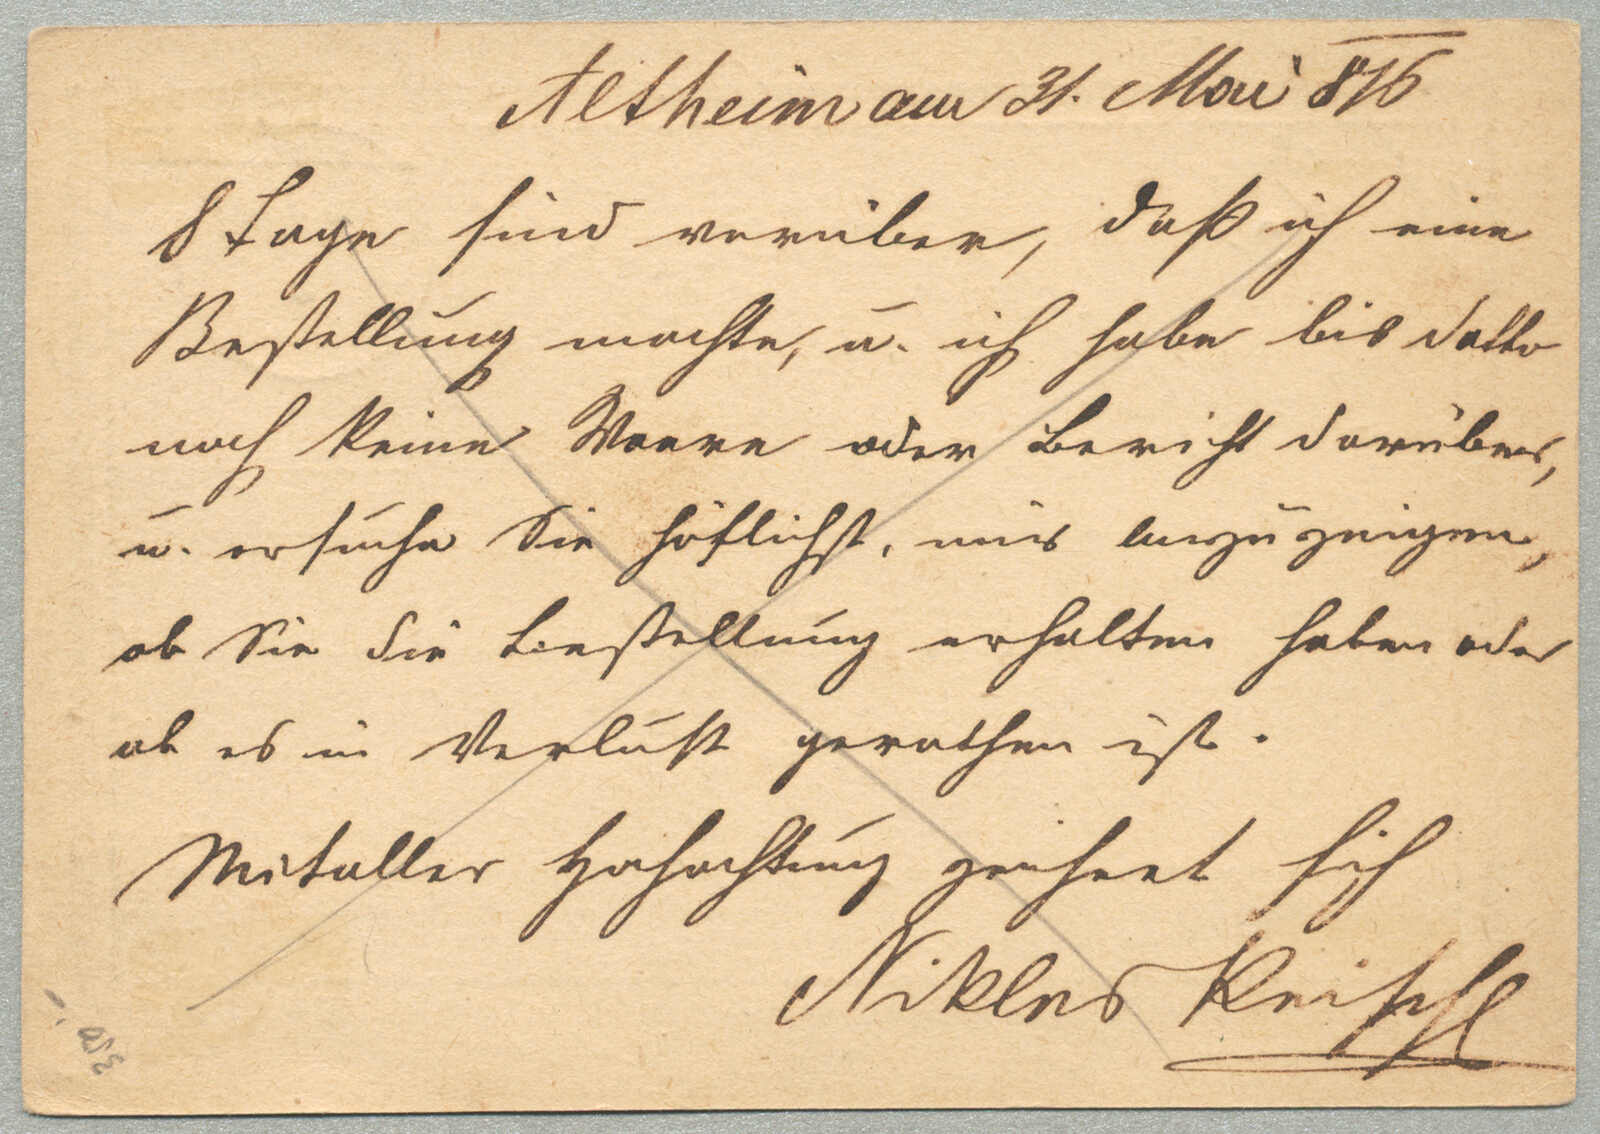 Altheim am 31. Mai 876
8 Tage sind vorüber, daß ich eine
Bestellung machte, u. ich habe bis datto
noch keine Waare oder Bericht darüber,
u. ersuche Sie höflichst, mir anzuzeigen,
ob Sie die Bestellung erhalten haben oder
ob es in Verlust gerathen ist.
Mit aller Hochachtung zeichnet sich
Niklas Reischl